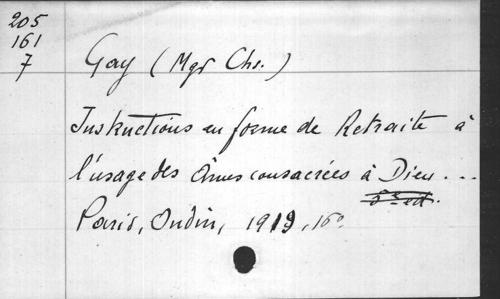 205
161
7
Gay (Mgr Chs.)
Instructions en forme de Retraite à
l'usage des Âmes consacrées à Dieu...
8me ed.
Paris, Oudin, 1919, 16º.